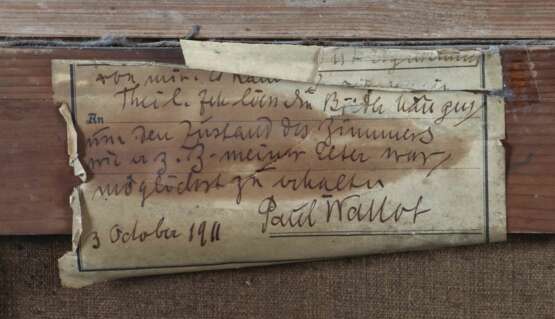 von mir. Es
Theil. Ich ließ die Bilder hängen,
An
um den Zustand des Zimmers
wie er z. Z. meiner Elter war,
möglichst zu erhalten
Paul Wallot
3 October 1911